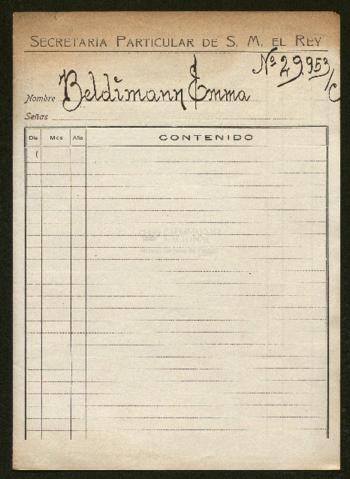 SECRETARÍA PARTICULAR DE S. M. EL REY
Nº 29953/C
Nombre Beldimann Emma
Señas
Día Mes Año CONTENIDO